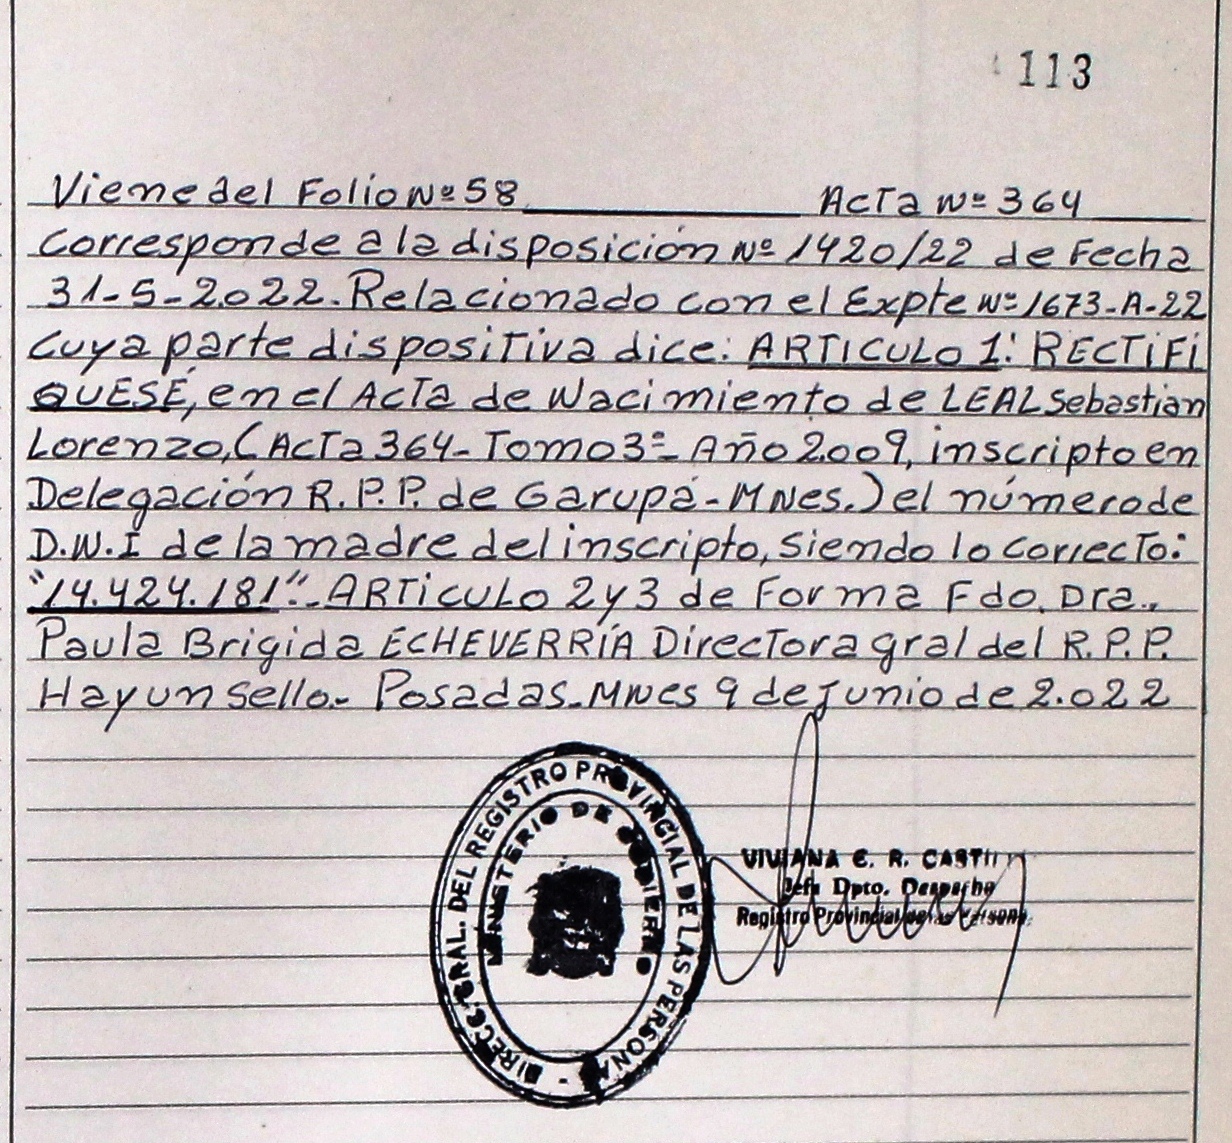 113
Viene del Folio Nº 58 Acta Nº 364
Corresponde a la disposición Nº 1420/22 de Fecha
31-5-2.022. Relacionado con el Expte Nº 1673-A-22
Cuya parte dispositiva dice: ARTICULO 1: RECTIFI
QUESE, en el Acta de Nacimiento de LEAL Sebastian
Lorenzo, (Acta 364-Tomo 3º- Año 2.009, inscripto en
Delegación R.P.P. de Garupá-MNes.) el número de
D.N.I de la madre del inscripto, siendo lo correcto:
"14.424.181".- ARTICULO 2 y 3 de Forma Fdo. Dra..
Paula Brigida ECHEVERRÍA Directora gral del R.P.P.
Hay un sello.- Posadas.MNes 9 de junio de 2.022
DIREC. GRAL. DEL REGISTRO PROVINCIAL DE LAS PERSONAS
MINISTERIO DE GOBIERNO
VIVIANA E. R.
Jefa Dpto. Despacho
Registro Provincial de las Persona